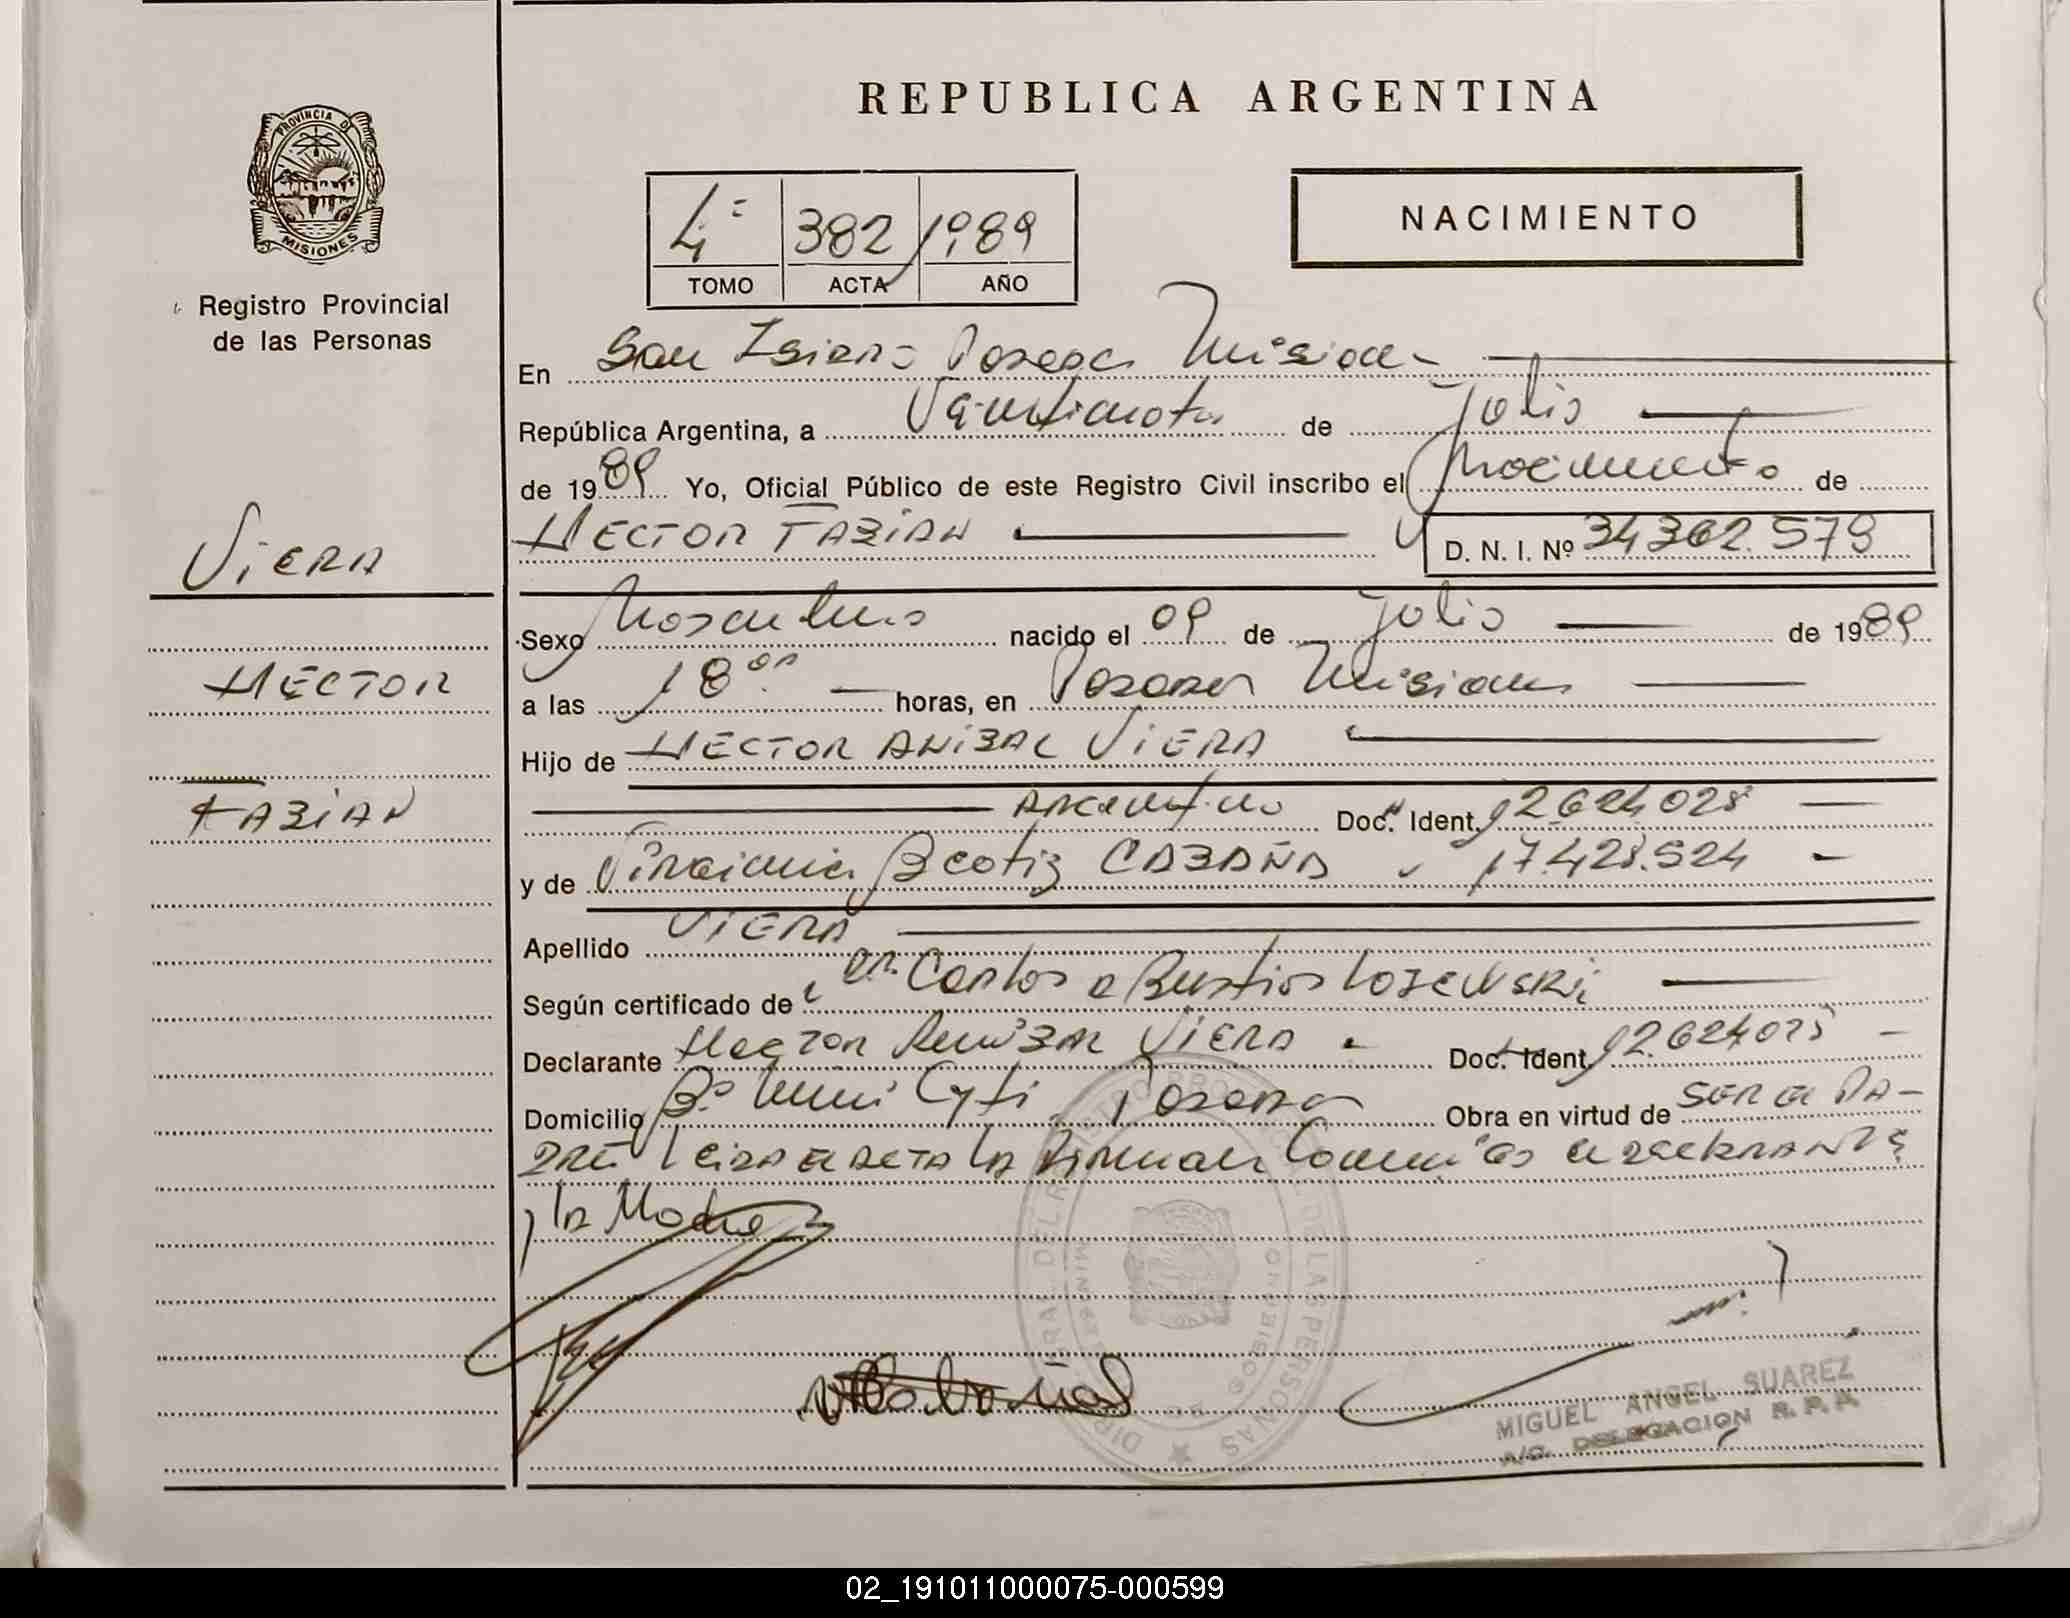 REPUBLICA ARGENTINA
PROVINCIA DE
MISIONES
Registro Provincial
de las Personas
4= 382 1989
TOMO ACTA AÑO
NACIMIENTO
En San Isidro Posadas Misiones
República Argentina, a Veintinueve de Julio
de 1989 Yo, Oficial Público de este Registro Civil inscribo el Nacimiento de
HECTOR FABIAN D. N. I. Nº 34362.579
VIERA
HECTOR
FABIAN
Sexo Masculino nacido el 09 de Julio de 1989
a las 18 horas, en Posadas Misiones
Hijo de HECTOR ANIBAL VIERA
Argentino Doc. Ident. 12624028
y de Virginia Beatiz CABAÑA 17.428.524
Apellido VIERA
Según certificado de Dr. Carlos
Declarante Hector Anibal VIERA Doc. Ident. 12.624028
Domicilio Bº Posadas Obra en virtud de ser el Pa-
dre Leida el acta la firman el declarante
y la Madre
DIR. GRAL. DEL REGISTRO PROV. DE LAS PERSONAS
MIGUEL ANGEL SUAREZ
A/C. DELEGACION R. P. P.
02_191011000075-000599